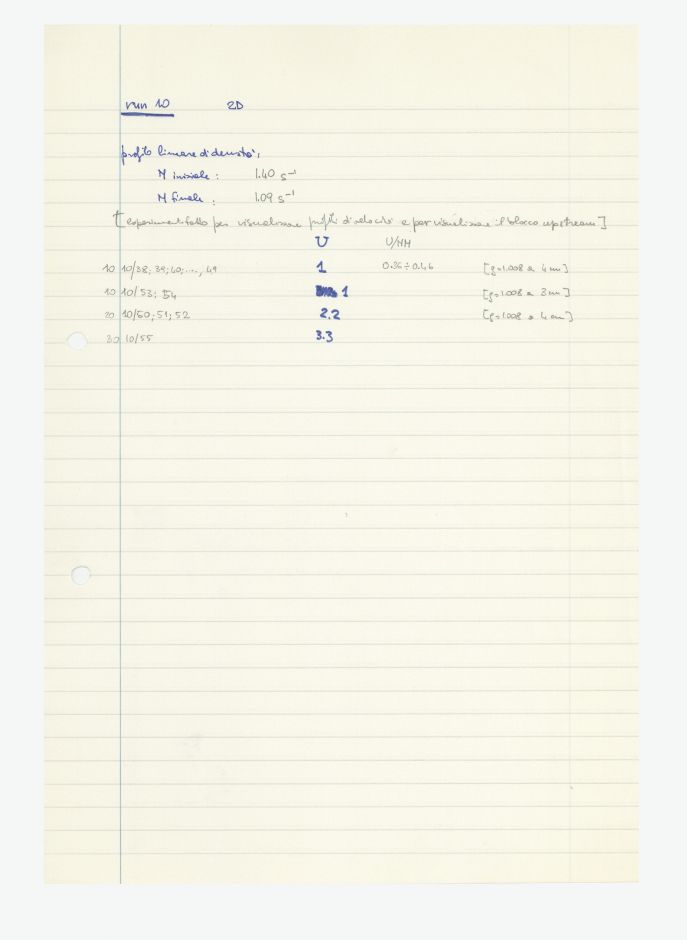 run 10 2D
profilo lineare di densità:
N iniziale : 1.40 s⁻¹
N finale : 1.09 s⁻¹
[esperimento fatto per visualizzare profili di velocità e per visualizzare il blocco upstream]
U U/NH
10 10/38; 39; 40; ..., 49 1 0.36÷0.46 [ρ=1.008 a 4 cm]
10 10/53; 54 1 [ρ=1.008 a 3 cm]
20 10/50; 51; 52 2.2 [ρ=1.008 a 4 cm]
30 10/55 3.3